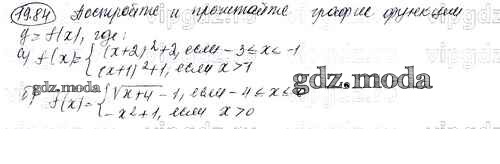 19.84 Постройте и прочитайте график функции
y = f(x), где:
а) f(x)= { (x+2)²+2, если -3≤x≤-1
(x+1)²+1, если x>1
gdz.moda
б) f(x)= { √x+4 -1, если -4≤x≤
-x²+1, если x>0